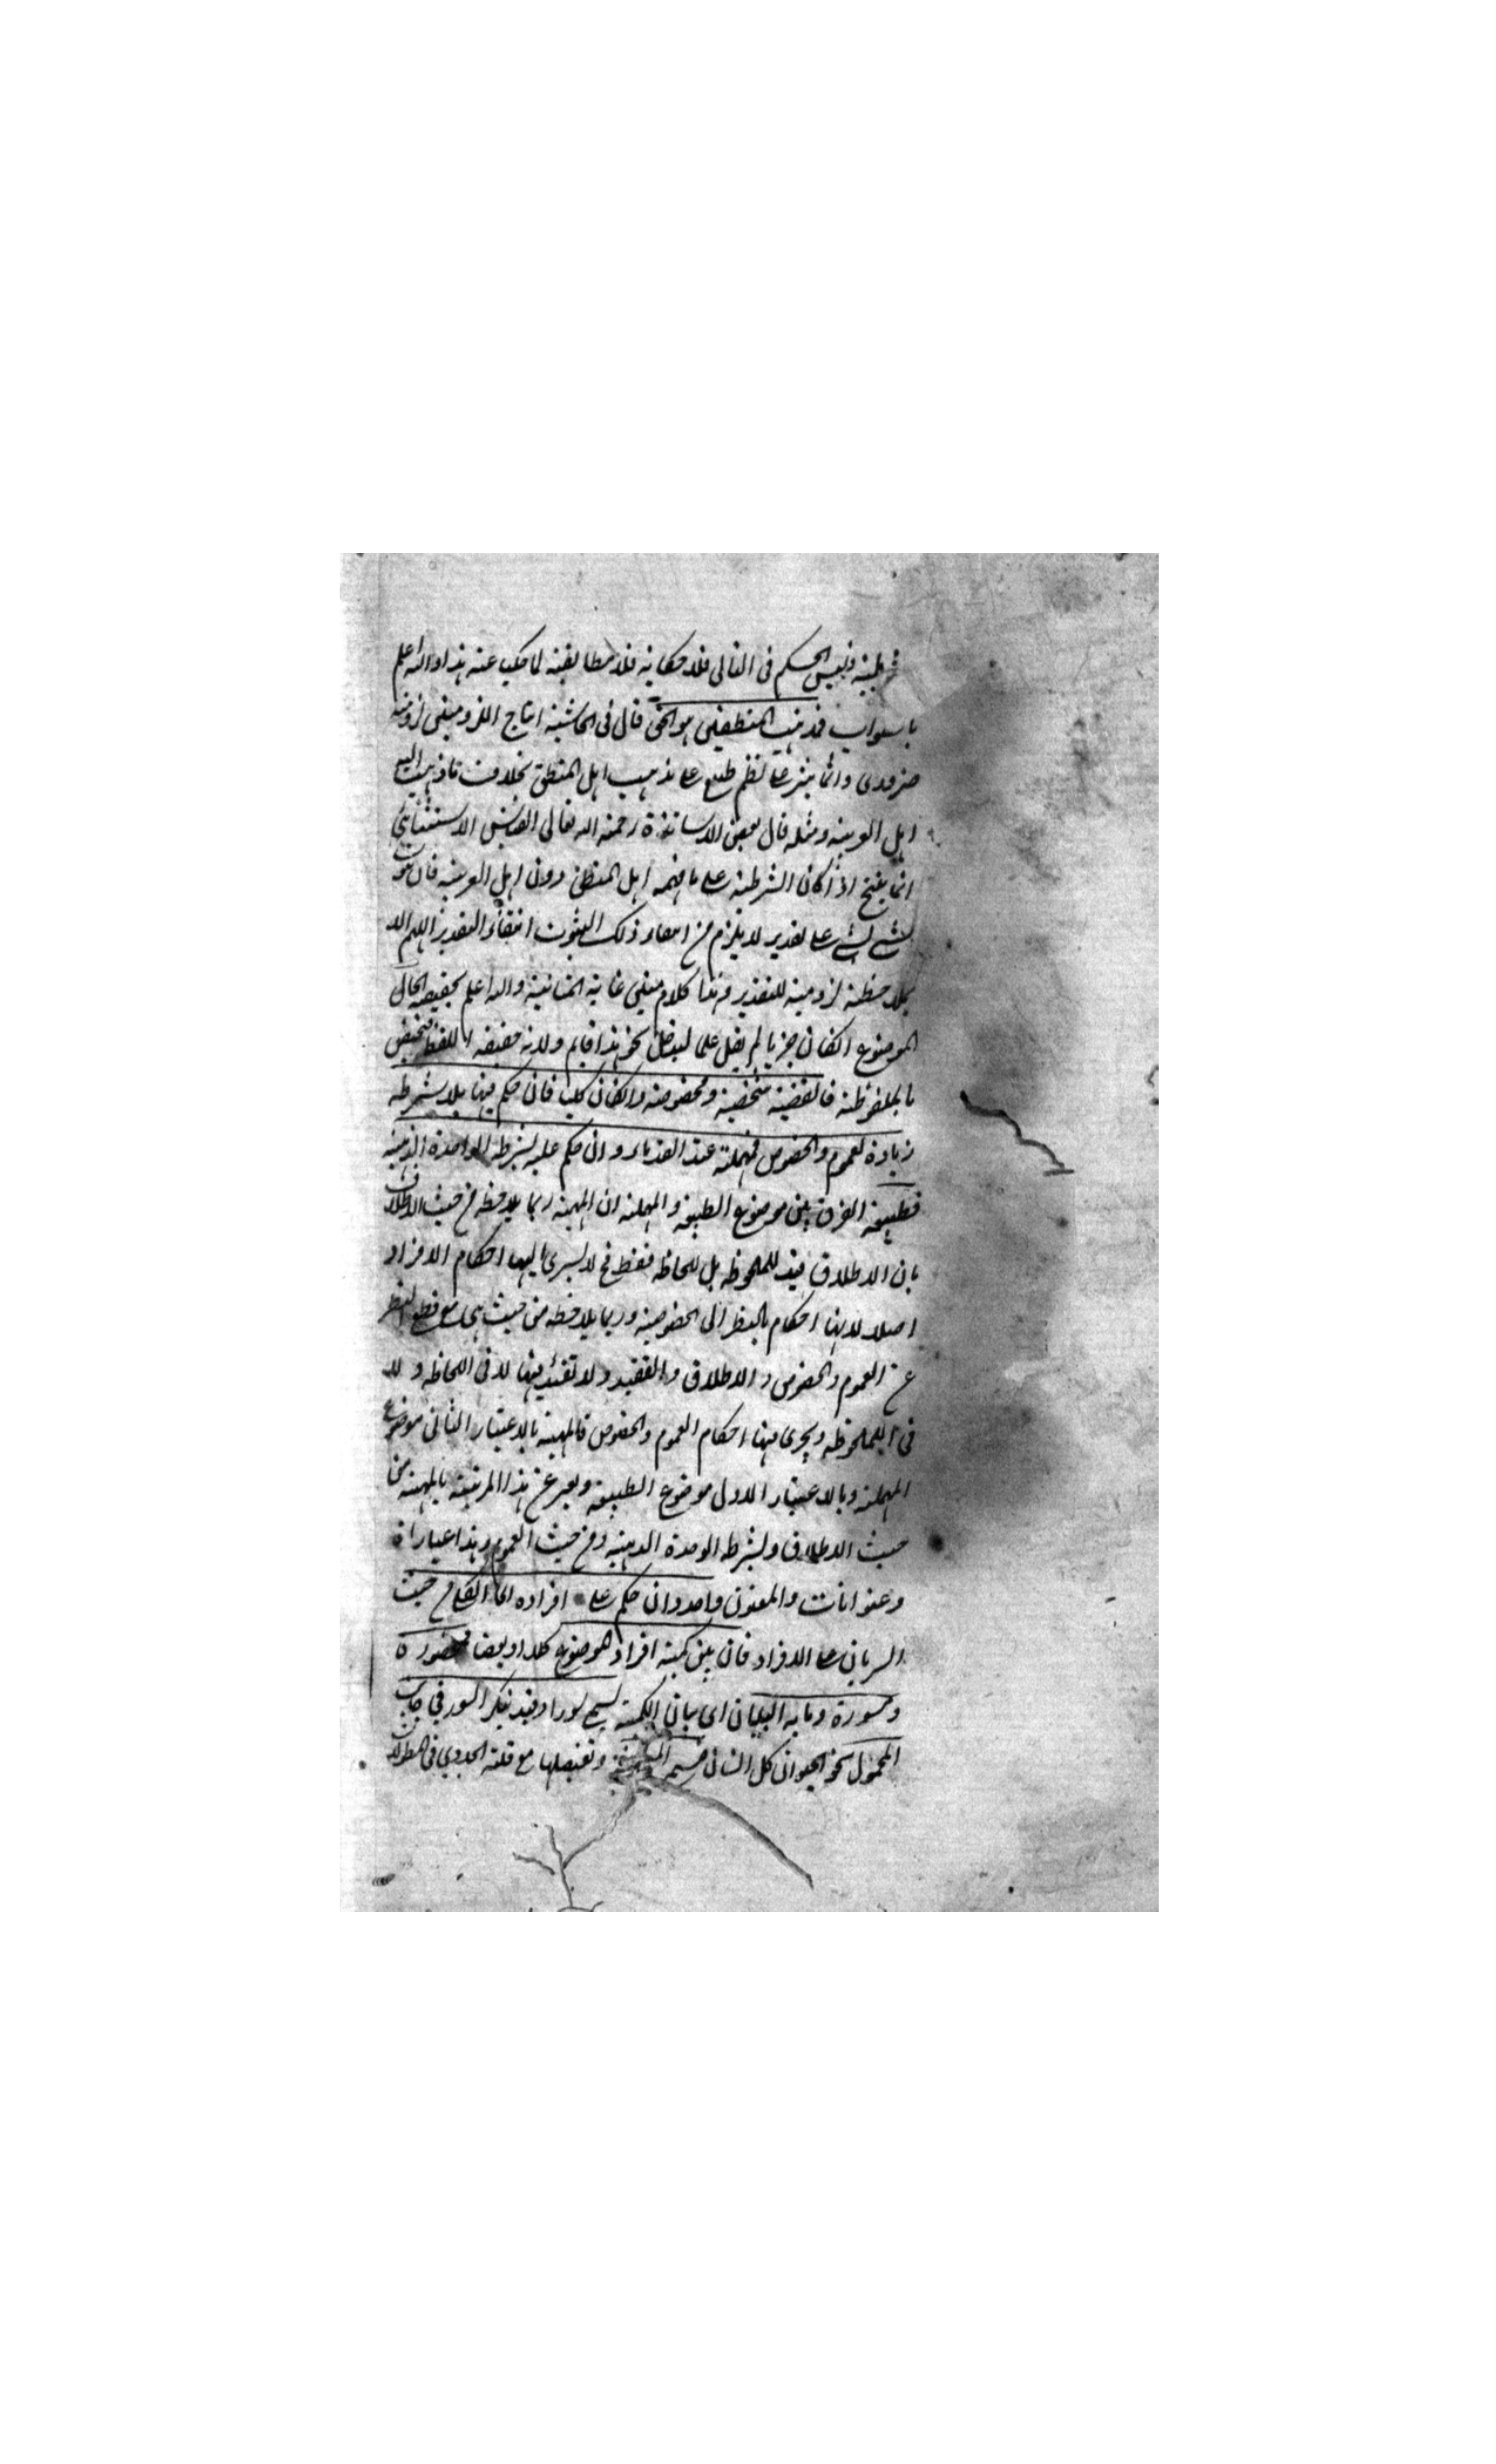 شرطية وليس الحكم فى التالى فلا حكاية فلا مطابقة لما حكيت عنه هذا والله اعلم
بالصواب فمذهب المنطقيين هو الحق قال فى الحاشية انتاج اللزوميتين لزومية
ضرورى وانما ينثر على نظم طبعى على مذهب اهل المنطق بخلاف ما ذهب اليه
اهل العربية ومثله قال بعض الاساتذة رحمة الله تعالى القياس الاستثنائى
انما ينتج اذا كان الشرطية على ما فهمه اهل المنطق دون اهل العربية فان ثبوت
شئ لشئ على تقدير لا يلزم من انتفاء ذلك الثبوت انتفاء التقدير اللهم الا
بملاحظة لزومية للتقدير وهذا كلام متين غاية المتانية والله اعلم بحقيقة الحال
الموضوع ان كان جزئيا لم يقل علما ليدخل نحو هذا قايم ولانه حقيقة اللفظ فيختص
بالملفوظة فالقضية شخصية ومخصوصة وان كان كليا فان حكم فيها بلا شرط
زيادة لعموم والخصوص فمهملة عند القدماء وان حكم عليه بشرط الواحدة الذهنية
فطبيعة الفرق بين موضوع الطبيعة والمهملة ان المهية ربما يلاحظ من حيث الاطلاق
بان الاطلاق قيد للملحوظ بل للحاظ فقط فح لا يسرى اليها احكام الافراد
اصلا لانها احكام بالنظر الى الخصوصية وربما يلاحظه من حيث هى مع قطع النظر
عن العموم والخصوص والاطلاق والتقيد ولا تقييد فيها لا فى اللحاظ ولا
فى الملحوظ ويجرى فيها احكام العموم والخصوص فالمهية بالاعتبار الثانى موضوع
المهملة وبالاعتبار الاول موضوع الطبيعة ويعبر عن هذا المرتبة بالمهية من
حيث الاطلاق وبشرط الوحدة الذهنية ومن حيث العموم وهذا عبارات
وعنوانات والمعنون واحد وان حكم على افراده اى الكلى من حيث
السريان على الافراد فان بين كمية افراد الموضوع كلا او بعضا فمحصورة
ومسورة وما به البيان اى بيان الكمية يسمى سورا وقد يذكر السور فى جانب
المحمول نحو الحيوان كل انسان فيسمى وتفصيلها مع قلة الجدوى فى المطولات